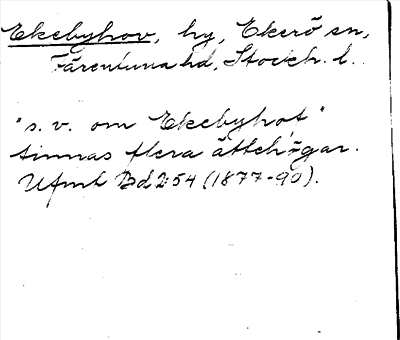 Ekebyhov, by, Ekerö sn,
Färentuna hd, Stockh. l.
"s. v. om Ekebyhof"
finnas flera ättehögar.
Ufmt Bd 2:54 (1877-90).